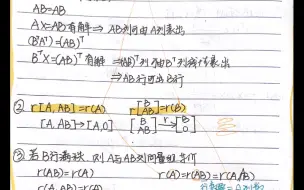 AB=AB
AX=AB有解 ⇒ AB列可由A列表出
(BᵀAᵀ)=(AB)ᵀ
BᵀX=(AB)ᵀ有解 ⇒(AB)ᵀ列可由Bᵀ列线性表出
⇒AB行可由B行
② r[A,AB]=r(A) r[B AB]=r(B)
[A,AB]→[A,0] [B AB] r→ [B 0]
③ 若B行满秩,则A与AB列向量组等价
r(AB)=r(A) r(A)=r(AB)=r(A/B)
r(A,AB)=r(A)